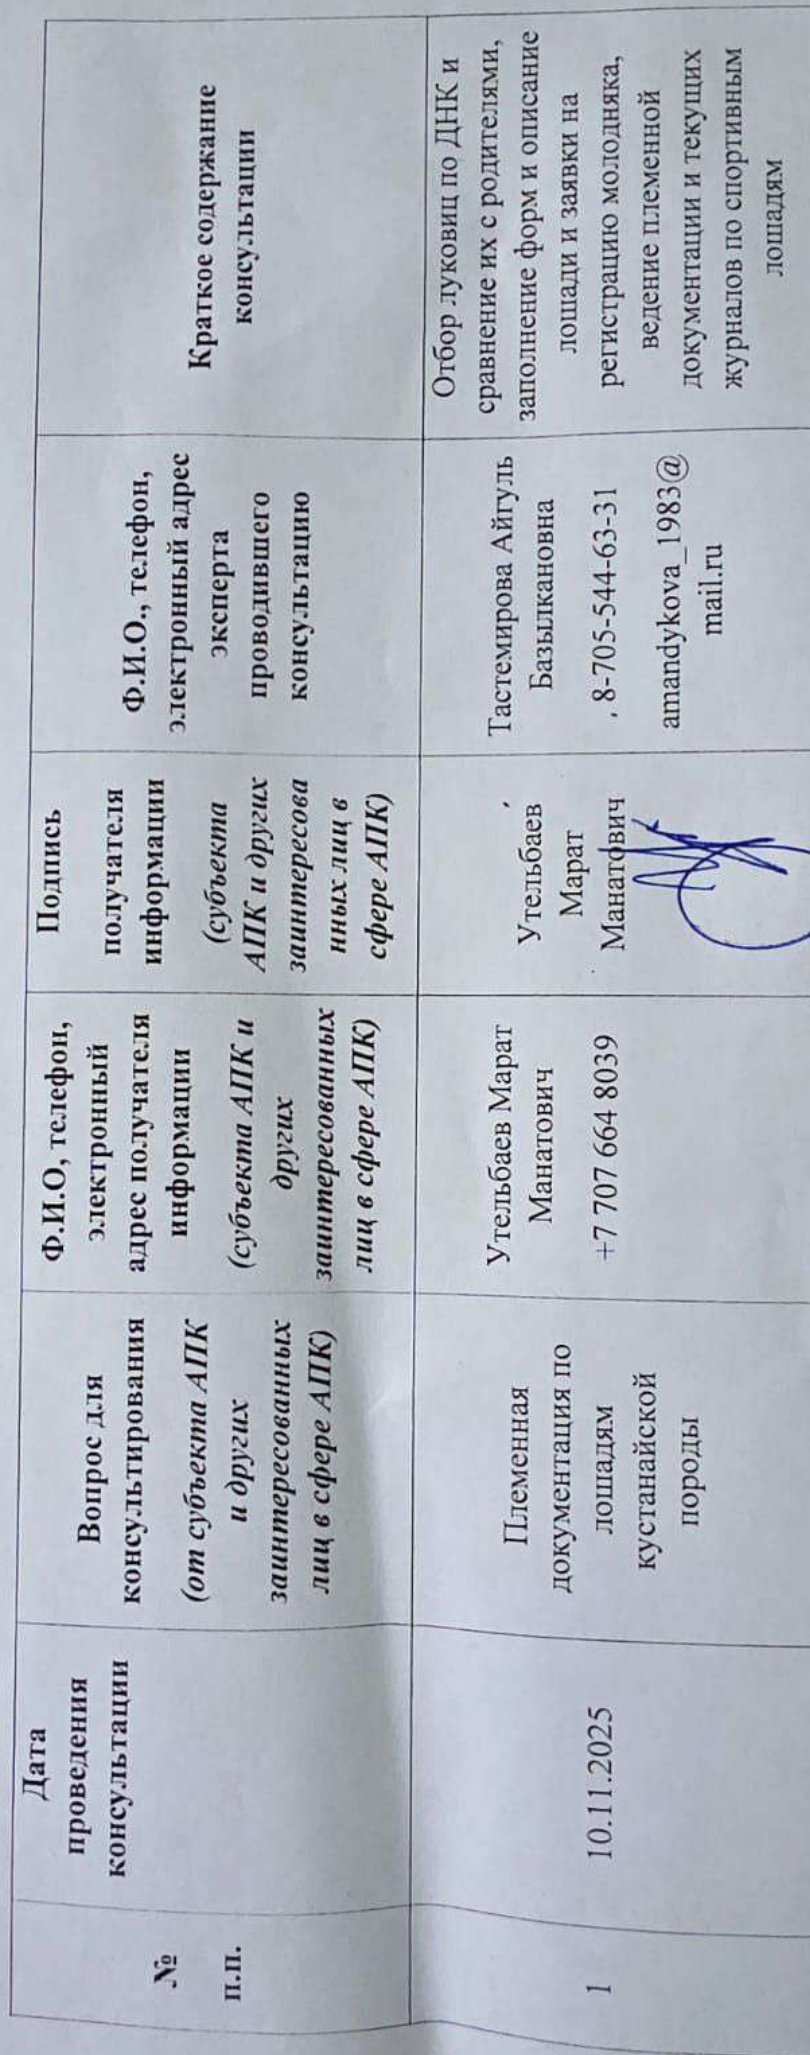 №
п.п.
Дата
проведения
консультации
Вопрос для
консультирования
(от субъекта АПК
и других
заинтересованных
лиц в сфере АПК)
Ф.И.О, телефон,
электронный
адрес получателя
информации
(субъекта АПК и
других
заинтересованных
лиц в сфере АПК)
Подпись
получателя
информации
(субъекта
АПК и других
заинтересова
нных лиц в
сфере АПК)
Ф.И.О., телефон,
электронный адрес
эксперта
проводившего
консультацию
Краткое содержание
консультации
1
10.11.2025
Племенная
документация по
лошадям
кустанайской
породы
Утельбаев Марат
Манатович
+7 707 664 8039
Утельбаев
Марат
Манатович
Тастемирова Айгуль
Базылкановна
, 8-705-544-63-31
amandykova_1983@
mail.ru
Отбор луковиц по ДНК и
сравнение их с родителями,
заполнение форм и описание
лошади и заявки на
регистрацию молодняка,
ведение племенной
документации и текущих
журналов по спортивным
лошадям